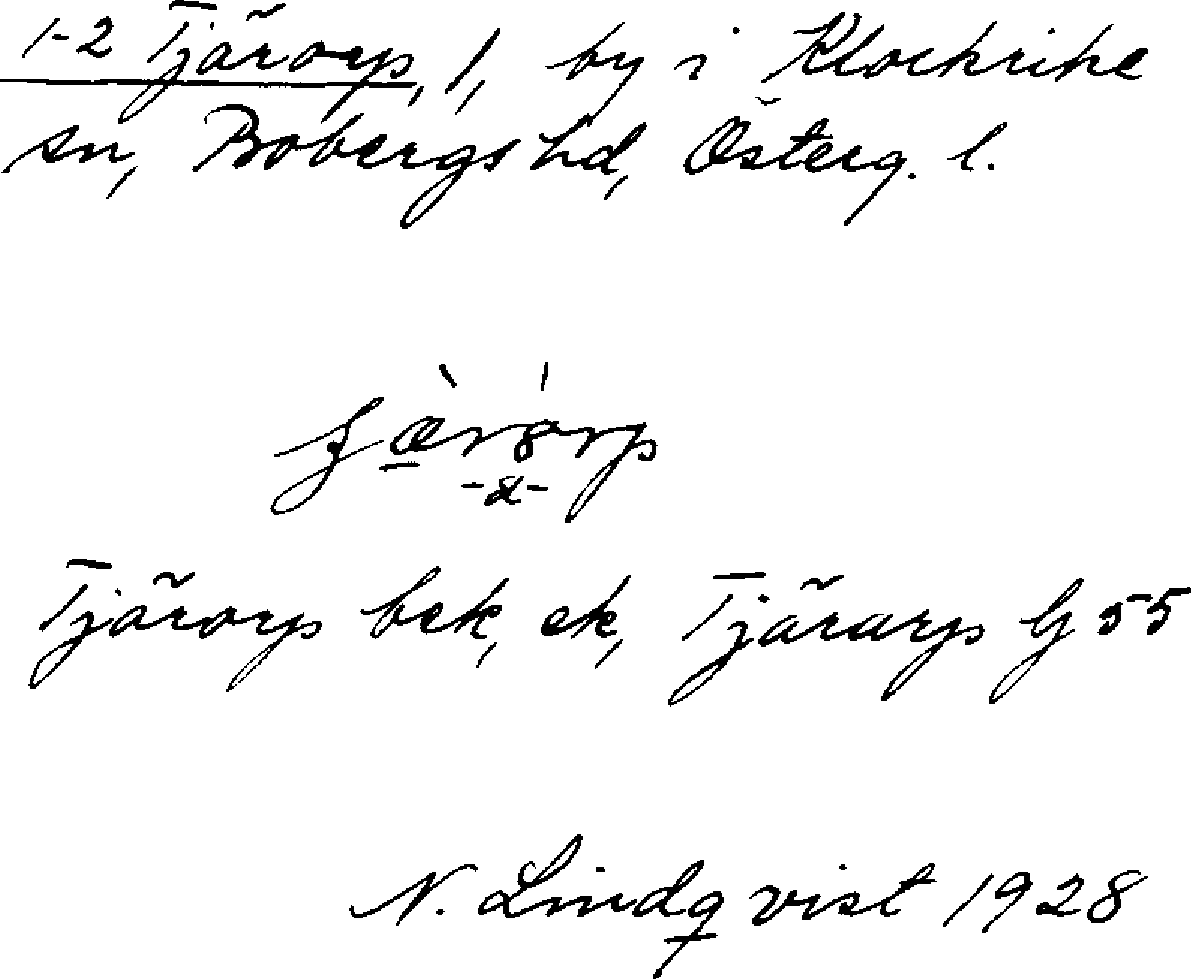 1-2 Tjärorp, 1, by i Klockrike
sn, Bobergs hd, Österg. l.
Tjärorp bek, ek, Tjärarp G 55
N. Lindqvist 1928